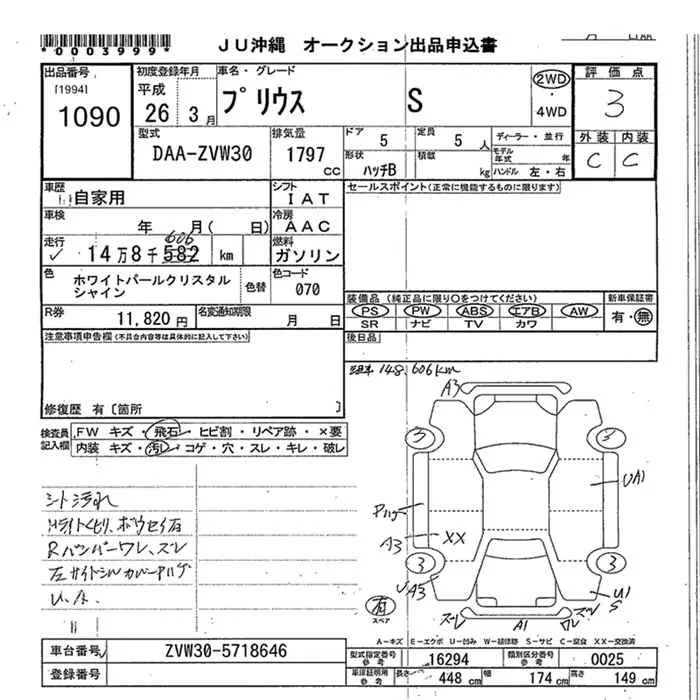 *0003999*
JU沖縄 オークション出品申込書
出品番号
[1994]
1090
初度登録年月
平成
26 3月
車名・グレード
プリウス S
2WD
・
4WD
評価点
3
外装 内装
C C
型式
DAA-ZVW30
排気量
1797
CC
ドア
5
定員
5 人
ディーラー・並行
モデル年式 年
形状
ハッチB
積載
kg
ハンドル 左・右
車歴
自家用
シフト
IAT
セールスポイント(正常に機能するものに限ります)
車検
年 月( 日)
冷房
AAC
走行
✓ 14万8千582 km
606
燃料
ガソリン
色
ホワイトパールクリスタル
シャイン
色替
色コード
070
装備品 (純正品に限り○をつけてください)
PS PW ABS エアB AW
SR ナビ TV カワ
新車保証書
有・無
R券
11,820円
名変通知期限
月 日
注意事項申告欄(不具合内容等は具体的に記入して下さい)
後日品
148,606km
修復歴 有〔箇所 〕
検査員
記入欄
FW キズ・飛石・ヒビ割・リペア跡・×要
内装 キズ・汚レ・コゲ・穴・スレ・キレ・破レ
シート汚れ
Hライトくもり、ボウセイ石
Rバンパーワレ、スレ
左サイドシルカバーハゲ
U.A.
A3
3
3
UA1
Pハゲ
A3
XX
3
3
UA3
U1
S
スレ
A1
ワレ
スレ
有
スペア
A−キズ E−エクボ U−凹み W−補修跡 S−サビ C−腐食 XX−交換済
車台番号
ZVW30-5718646
登録番号
型式指定番号
参考
16294
類別区分番号
参考
0025
車庫証明用
参考
長さ 448 cm
幅 174 cm
高さ 149 cm